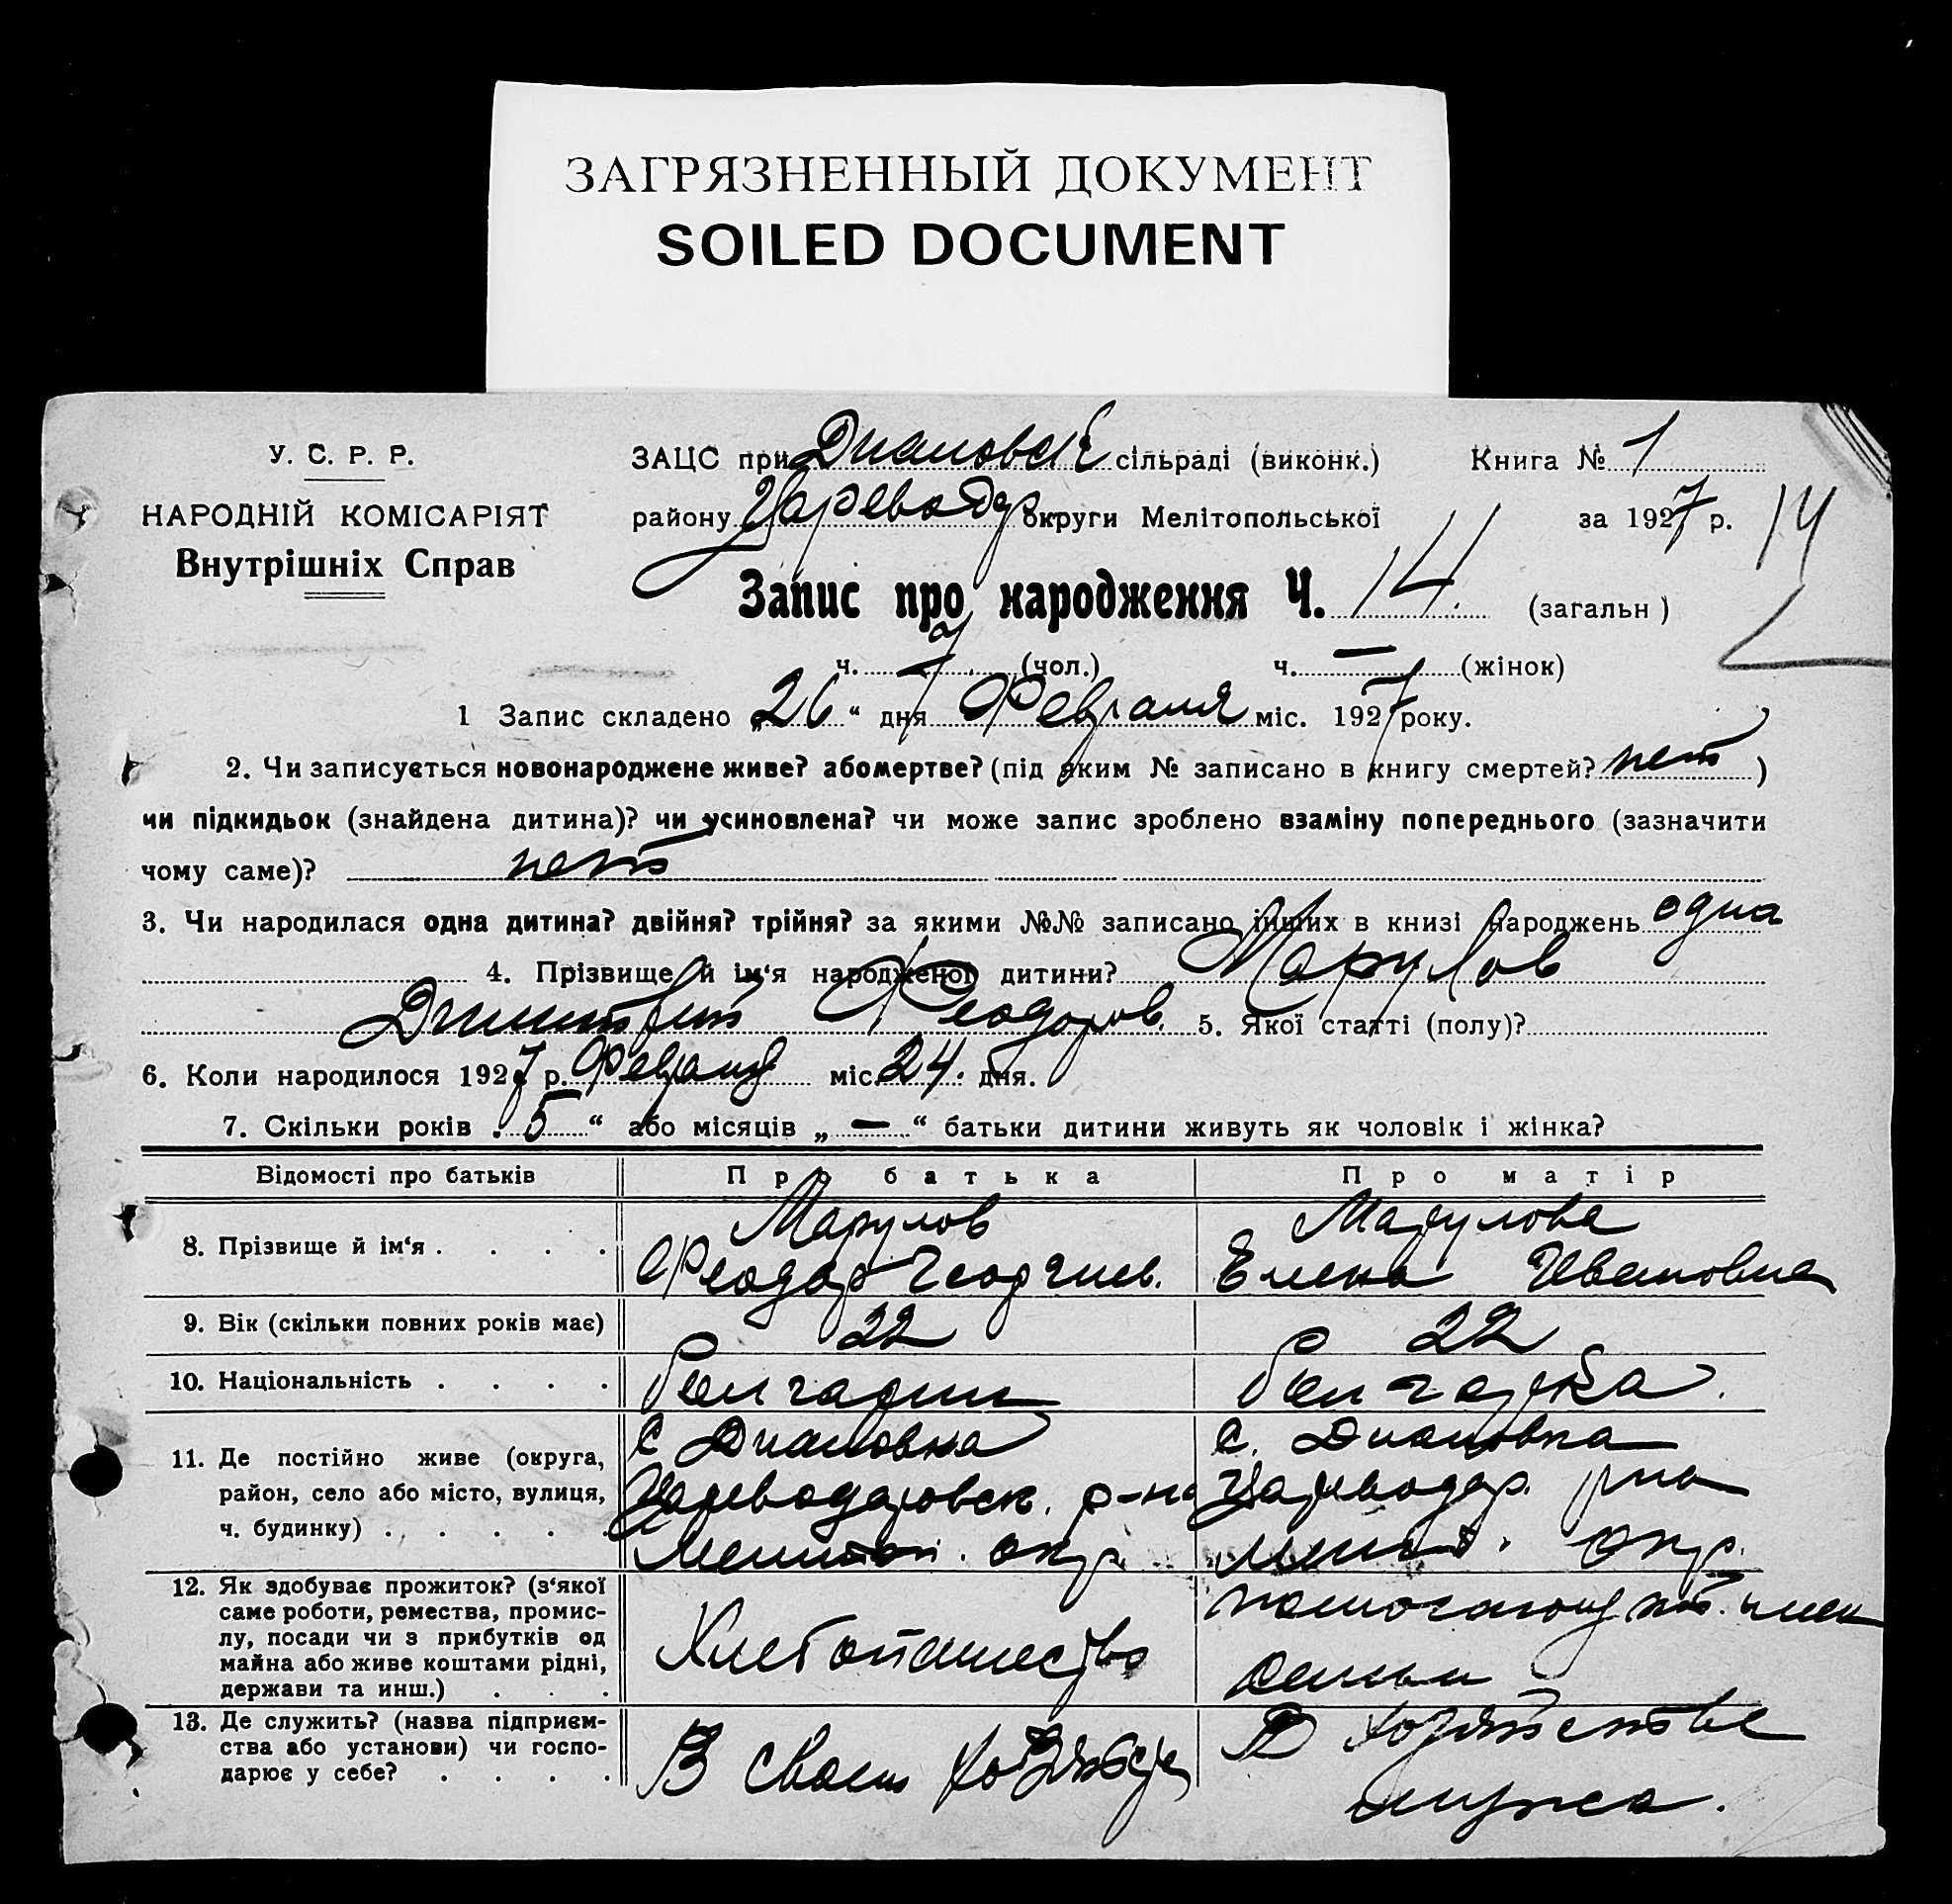 ЗАГРЯЗНЕННЫЙ ДОКУМЕНТ
SOILED DOCUMENT
У. С. Р. Р.
НАРОДНІЙ КОМІСАРІЯТ
Внутрішніх Справ
ЗАЦС при Диановск сільраді (виконк.) Книга № 1
району Цареводар округи Мелітопольської за 1927 р. 14
Запис про народження Ч. 14. (загальн)
ч. 7 (чол.) ч. — (жінок)
1 Запис складено „26“ дня Февраля міс. 1927 року.
2. Чи записується новонароджене живе? або мертве? (під яким № записано в книгу смертей? нет )
чи підкидьок (знайдена дитина)? чи усиновлена? чи може запис зроблено взаміну попереднього (зазначити
чому саме)? нет
3. Чи народилася одна дитина? двійня? трійня? за якими №№ записано інших в книзі народжень одна
4. Прізвище й ім‘я народженої дитини? Марулов
Дмитрий Феодоров. 5. Якої статті (полу)?
6. Коли народилося 1927 р. Февраля міс. 24. дня.
7. Скільки років „5“ або місяців „—“ батьки дитини живуть як чоловік і жінка?
Відомості про батьків Про батька Про матір
8. Прізвище й ім‘я . . . . Марулов Марулова
Феодор Георгиев. Елена Ивановна
9. Вік (скільки повних років має) 22 22
10. Національність . . . . болгарин болгарка.
11. Де постійно живе (округа, с Диановка с. Диановка
район, село або місто, вулиця, Цареводаровск. р-на Цареводар. рна
ч. будинку) . . . . . Мелитоп. окр. Мелит. окр.
12. Як здобуває прожиток? (з‘якої
саме роботи, ремества, промис-
лу, посади чи з прибутків од
майна або живе коштами рідні,
держави та инш.) . . . Хлебопашество помогающ. член
семьи
13. Де служить? (назва підприєм-
ства або установи) чи госпо-
дарює у себе? . . . . В своем хозяйстве В хозяйстве
мужа.